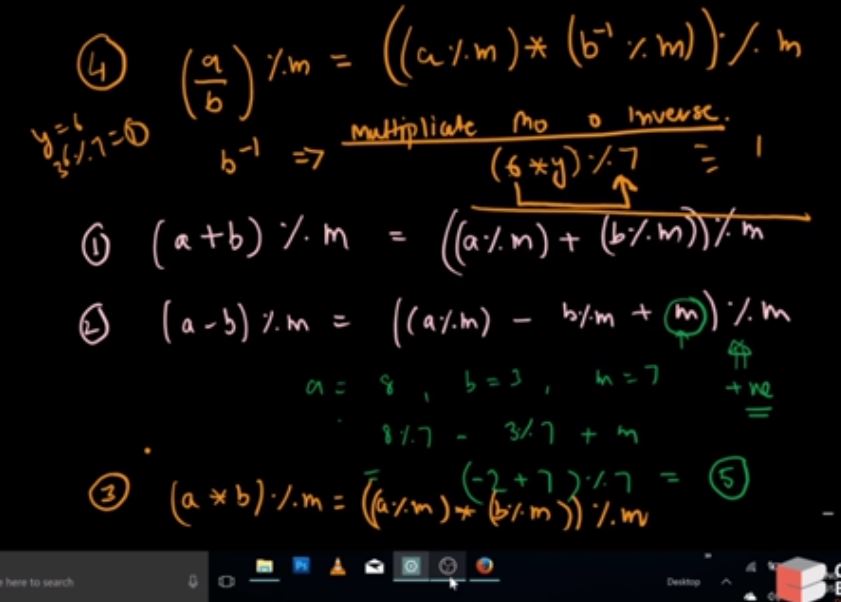 ④ (a/b) %m = ((a%m) * (b⁻¹ %m)) % m
y=6
36%7=①
b⁻¹ => multiplicate mo o inverse.
(6 * y) % 7 ≡ 1
① (a+b) % m = ((a%m) + (b%m)) % m
② (a-b) %m = ((a%m) - b%m + m) % m
a = 8 , b=3 , m=7
+ve
8%7 - 3%7 + m
= (-2 + 7) % 7 = ⑤
③ (a * b) %m = ((a%m) * (b%m)) % m
e here to search
Desktop